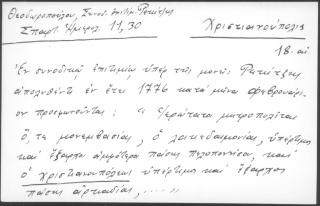 Θεοδωροπούλου, Συνοδ. ἐπιτίμ. Ρεκίτζης
Σπαρτ. Ἡμερολ. 11, 30
Χριστιανούπολις
18. αἰ
Ἐν συνοδικῷ ἐπιτιμίῳ ὑπὲρ τῆς μονῆς Ρεκίτζης
ἀπολυθέντι ἐν ἔτει 1776 κατὰ μῆνα φεβρουάρι-
ον προσφωνοῦνται: "Ἱερώτατοι μητροπολῖται
ὅ, τε μονεμβασίας, ὁ λακεδαιμονίας, ὑπέρτιμοι
καὶ ἔξαρχοι ἀμφότεροι πάσης πελοποννήσου, καὶ
ὁ Χριστιανουπόλεως ὑπέρτιμος καὶ ἔξαρχος
πάσης ἀρκαδίας, .....,